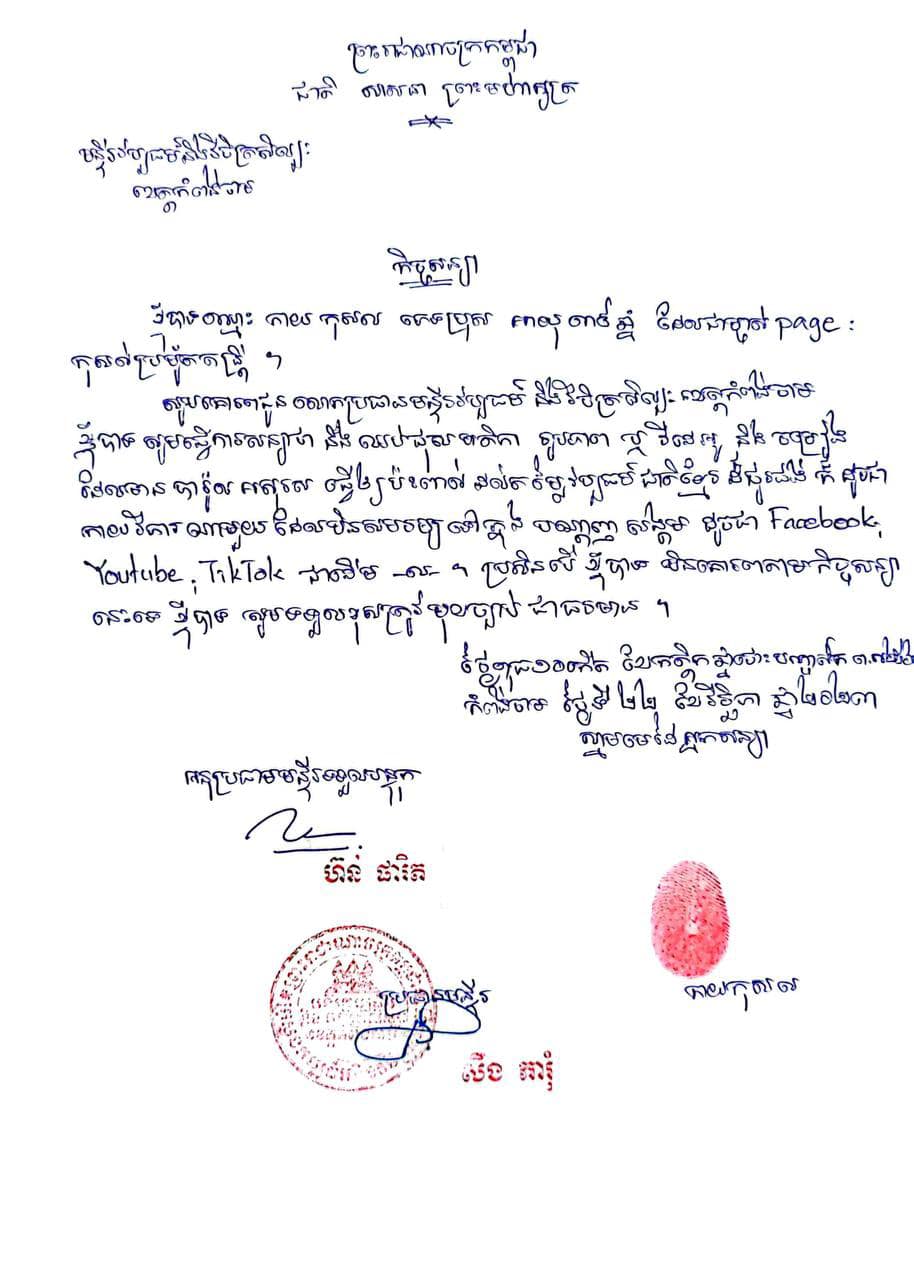 ព្រះរាជាណាចក្រកម្ពុជា
ជាតិ សាសនា ព្រះមហាក្សត្រ
មន្ទីរវប្បធម៌និងវិចិត្រសិល្បៈ
ខេត្តកំពង់ចាម
កិច្ចសន្យា
ខ្ញុំបាទឈ្មោះ កាយ កុសល ភេទប្រុស អាយុ ឆ្នាំ ដែលជាម្ចាស់ page :
កុសល ។
សូមគោរពជូន លោកប្រធានមន្ទីរវប្បធម៌ និងវិចិត្រសិល្បៈ ខេត្តកំពង់ចាម
ខ្ញុំបាទ សូមធ្វើការសន្យាថា នឹង ឈប់ផុស រូបភាព ឬ វីដេអូ និង ចម្រៀង
ដែលមាន ធ្វើឲ្យប៉ះពាល់ ដល់តម្លៃវប្បធម៌ ជាតិខ្មែរ ក៏ ដូចជា
កាយវិការ ណាមួយ ដែលមិនសមរម្យ នៅក្នុង បណ្តាញ សង្គម ដូចជា Facebook,
Youtube, TikTok ជាដើម -ល- ។ ប្រសិនបើ ខ្ញុំបាទ មិនគោរពតាមកិច្ចសន្យា
នេះទេ ខ្ញុំបាទ សូមទទួលខុសត្រូវ មុខច្បាប់ ជាធរមាន ។
ថ្ងៃពុធ១០កើត ខែកត្តិក ឆ្នាំថោះ បញ្ចស័ក
កំពង់ចាម ថ្ងៃទី ២២ ខែវិច្ឆិកា ឆ្នាំ២០២៣
ស្នាមមេដៃ អ្នកសន្យា
អនុប្រធានមន្ទីរទទួលបន្ទុក
ហ៊ន់ ផារិត
ប្រធានមន្ទីរ
កាយកុសល